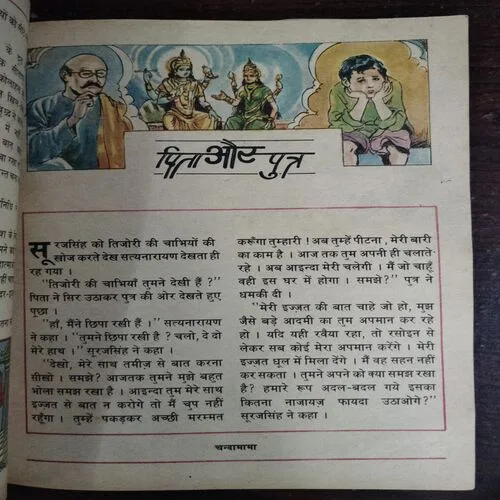 पिता और पुत्र
सूरजसिंह को तिजोरी की चाभियों की
खोज करते देख सत्यनारायण देखता ही
रह गया ।
"तिजोरी की चाभियाँ तुमने देखी हैं ?"
पिता ने सिर उठाकर पुत्र की ओर देखते हुए
पूछा ।
"हाँ, मैंने छिपा रखी हैं ।" सत्यनारायण
ने कहा । "तुमने छिपा रखी है ? चलो, दे दो
मेरे हाथ ।" सूरजसिंह ने कहा ।
"देखो, मेरे साथ तमीज़ से बात करना
सीखो । समझे? आजतक तुमने मुझे बहुत
भोला समझ रखा है । आइन्दा तुम मेरे साथ
इज़्ज़त से बात न करोगे तो मैं चुप नहीं
रहूँगा । तुम्हें पकड़कर अच्छी मरम्मत
करूँगा तुम्हारी ! अब तुम्हें पीटना, मेरी बारी
का काम है । आज तक तुम अपनी ही चलाते
रहे । अब आइन्दा मेरी चलेगी । मैं जो चाहूँ
वही इस घर में होगा । समझे?" पुत्र ने
धमकी दी ।
"मेरी इज़्ज़त की बात चाहे जो हो, मुझ
जैसे बड़े आदमी का तुम अपमान कर रहे
हो । यदि यही रवैया रहा, तो रसोइन से
लेकर सब कोई मेरा अपमान करेंगे । मेरी
इज़्ज़त धूल में मिला देंगे । मैं वह सहन नहीं
कर सकता । तुमने अपने को क्या समझ रखा
है? हमारे रूप अदल-बदल गये इसका
कितना नाजायज़ फायदा उठाओगे?"
सूरजसिंह ने कहा ।
चन्दामामा